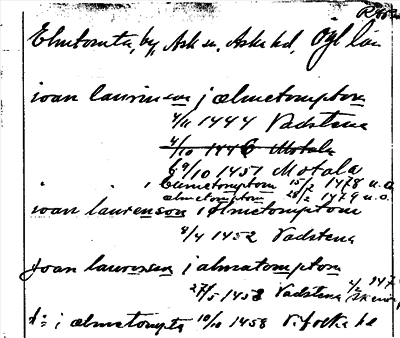 Elmtomta, by, Ask sn, Aska hd, Ögl län
ioan laurinson i ælmetomptom
4/11 1444 Vadstena
4/10 1446 Motala
9/10 1451 Motala
i Elmetomptom 15/2 1478 u.o.
ælmetomptom 28/2 1479 u.o.
ioan laurenson i elmetomptom
8/4 1452 Vadstena
Joan laurensen i almatomptom
27/5 1453 Vadstena 2/2 147
d:o i ælmetompta 10/10 1458